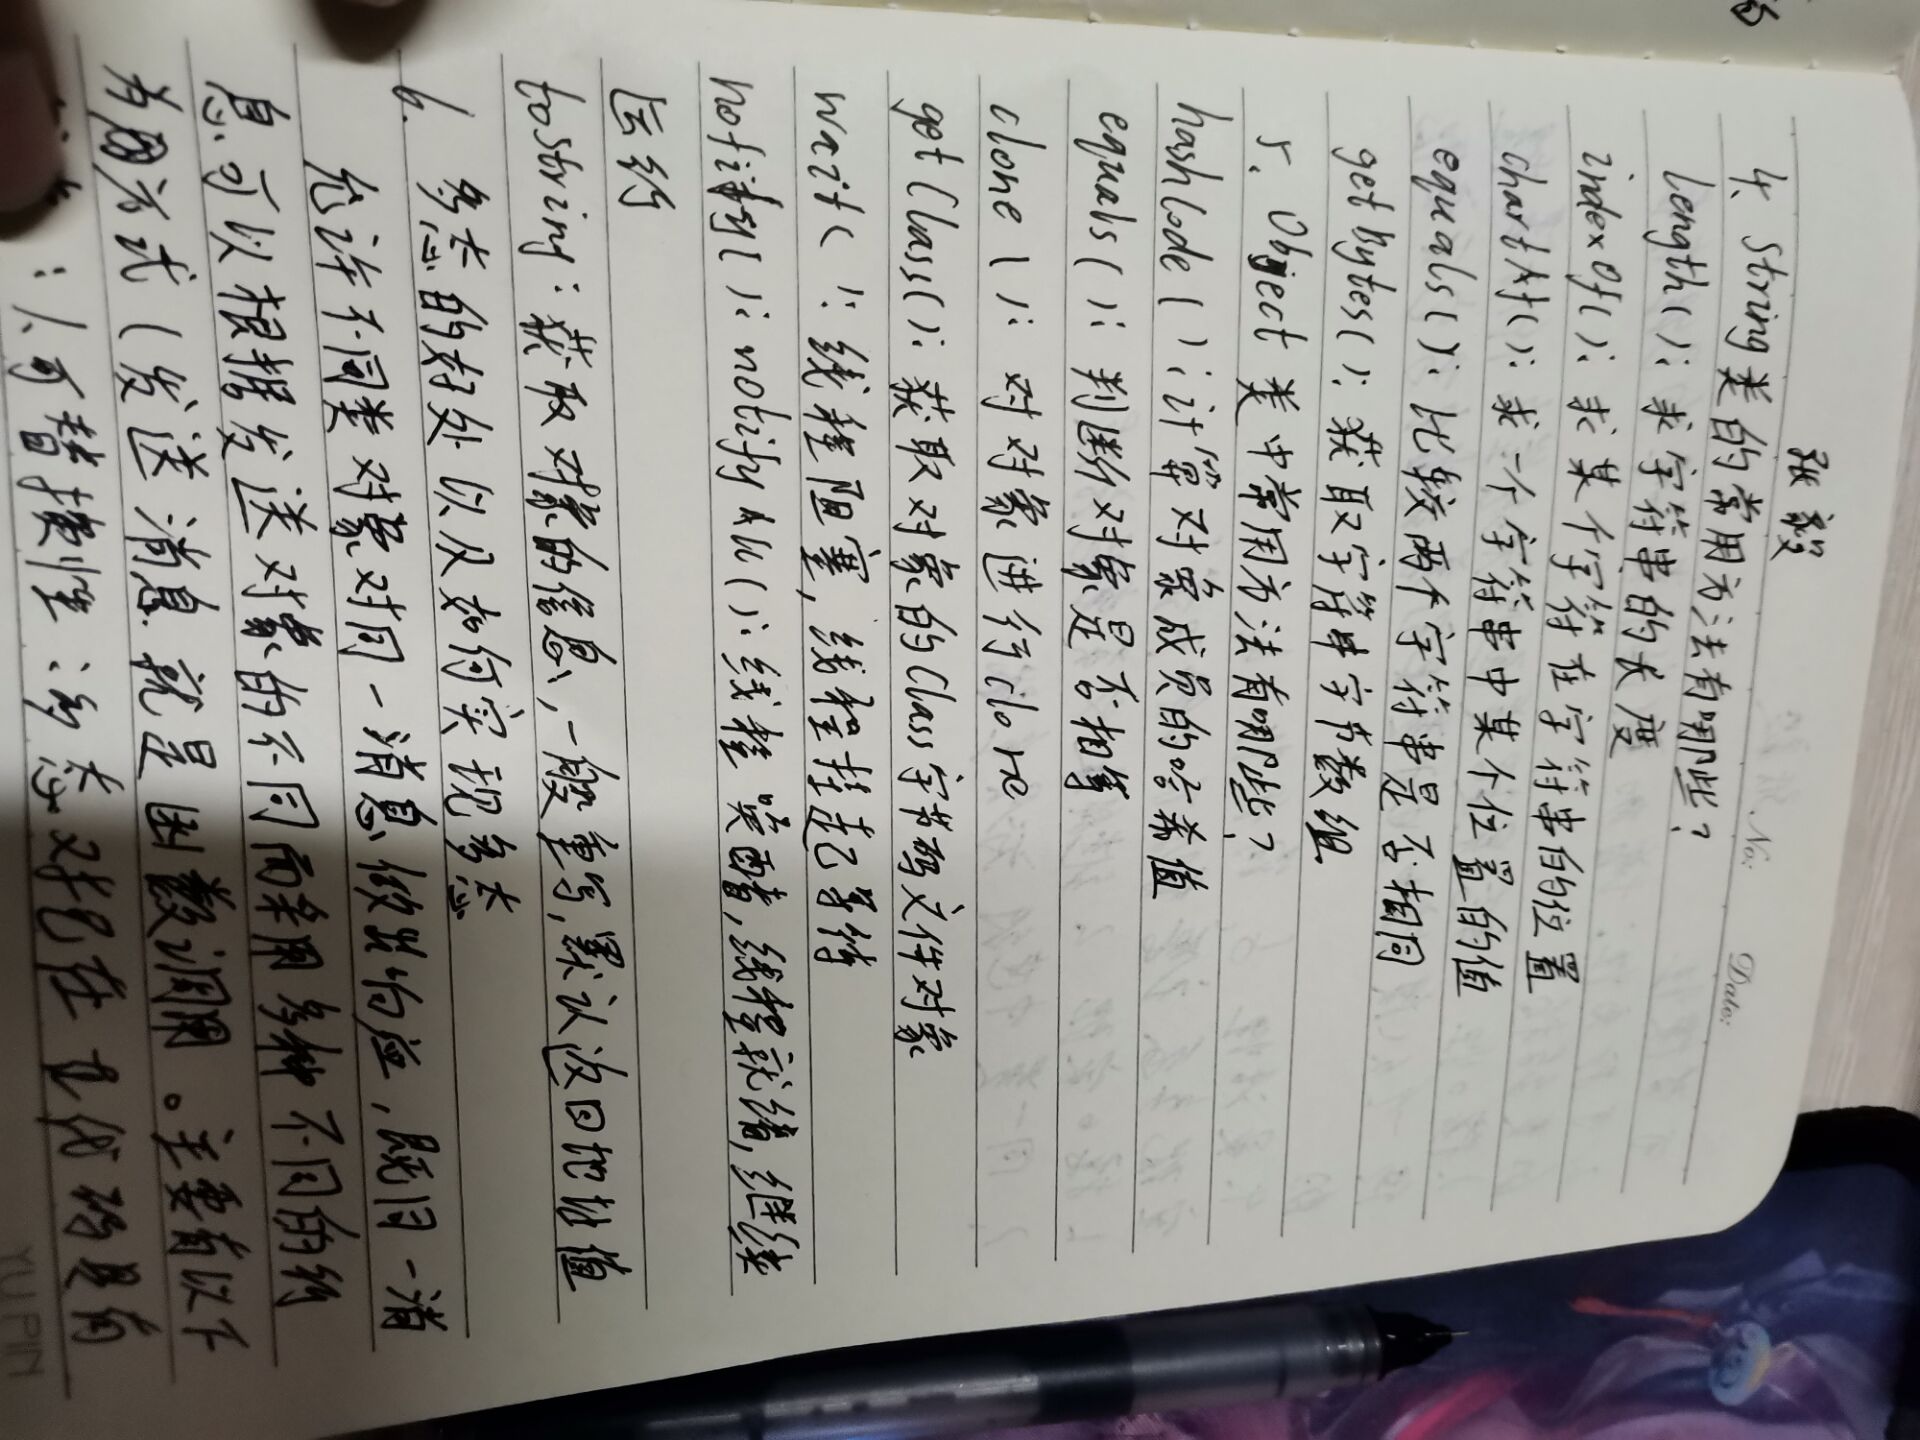 张毅
No:
Date:
4、String类的常用方法有哪些?
length(): 求字符串的长度
indexOf(): 求某个字符在字符串的位置
chartAt(): 求一个字符串中某个位置的值
equals(): 比较两个字符串是否相同
getbytes(): 获取字符串字节数组
5. Object类中常用方法有哪些?
hashCode(): 计算对象成员的哈希值
equals(): 判断对象是否相等
clone(): 对对象进行clone
getClass(): 获取对象的Class字节码文件对象
wait(): 线程阻塞,线程挂起等待
notify(): notifyAll(): 线程唤醒,线程就绪,继续
运行
toString: 获取对象的信息,一般重写,默认返回地址值
6. 多态的好处以及如何实现多态
允许不同类对象对同一消息做出响应,既同一消
息可以根据发送对象的不同而采用多种不同的行
为方式(发送消息就是函数调用。主要有以下
: 1、可替换性:多态对已存在
YU PIN